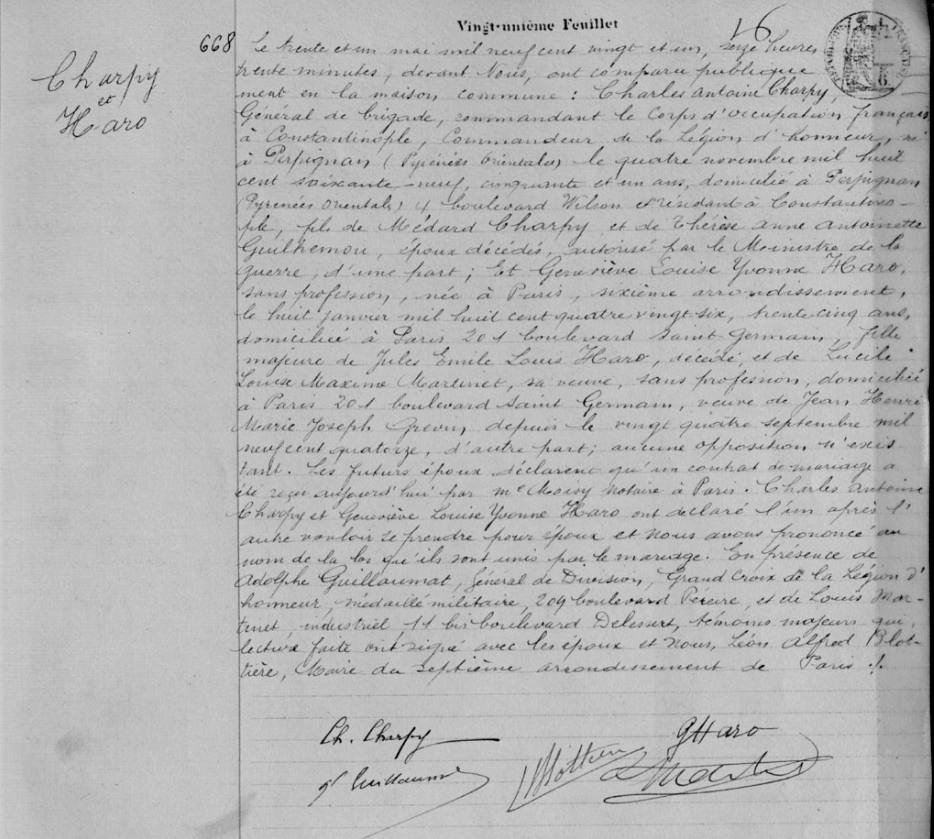 Vingt-unième Feuillet
16
668
Charpy
et
Haro
Le trente et un mai mil neuf cent vingt et un, seize heures
trente minutes, devant Nous, ont comparu publique
ment en la maison commune : Charles Antoine Charpy,
Général de brigade, commandant le Corps d'occupation français
à Constantinople, Commandeur de la Légion d'honneur, né
à Perpignan (Pyrénées Orientales) le quatre novembre mil huit
cent soixante-neuf, cinquante et un ans, domicilié à Perpignan
(Pyrénées Orientales) 4 boulevard Wilson et résidant à Constantino-
ple, fils de Médard Charpy et de Thérèse Anne Antoinette
Guilhemou, époux décédés, autorisé par le Ministre de la
guerre, d'une part ; Et Geneviève Louise Yvonne Haro,
sans profession, née à Paris, sixième arrondissement,
le huit janvier mil huit cent quatre vingt six, trente cinq ans,
domiciliée à Paris 201 boulevard Saint Germain, fille
majeure de Jules Emile Louis Haro, décédé, et de Lucile
Louise Maxime Martinet, sa veuve, sans profession, domiciliée
à Paris 201 boulevard Saint Germain, veuve de Jean Henri
Marie Joseph Grevin, depuis le vingt quatre septembre mil
neuf cent quatorze, d'autre part ; aucune opposition n'exis
tant. Les futurs époux déclarent qu'un contrat de mariage a
été reçu aujourd'hui par Me Moisy notaire à Paris. Charles Antoine
Charpy et Geneviève Louise Yvonne Haro ont déclaré l'un après l'
autre vouloir se prendre pour époux et Nous avons prononcé au
nom de la loi qu'ils sont unis par le mariage. En présence de
Adolphe Guillaumat, Général de Division, Grand Croix de la Légion d'
honneur, médaillé militaire, 209 boulevard Péreire, et de Louis Mar-
tinet, industriel, 11 bis boulevard Delessert, témoins majeurs qui,
lecture faite ont signé avec les époux et Nous, Léon Alfred Blot-
tière, Maire du septième arrondissement de Paris ./.
Ch. Charpy
GHaro
gl Guillaumat